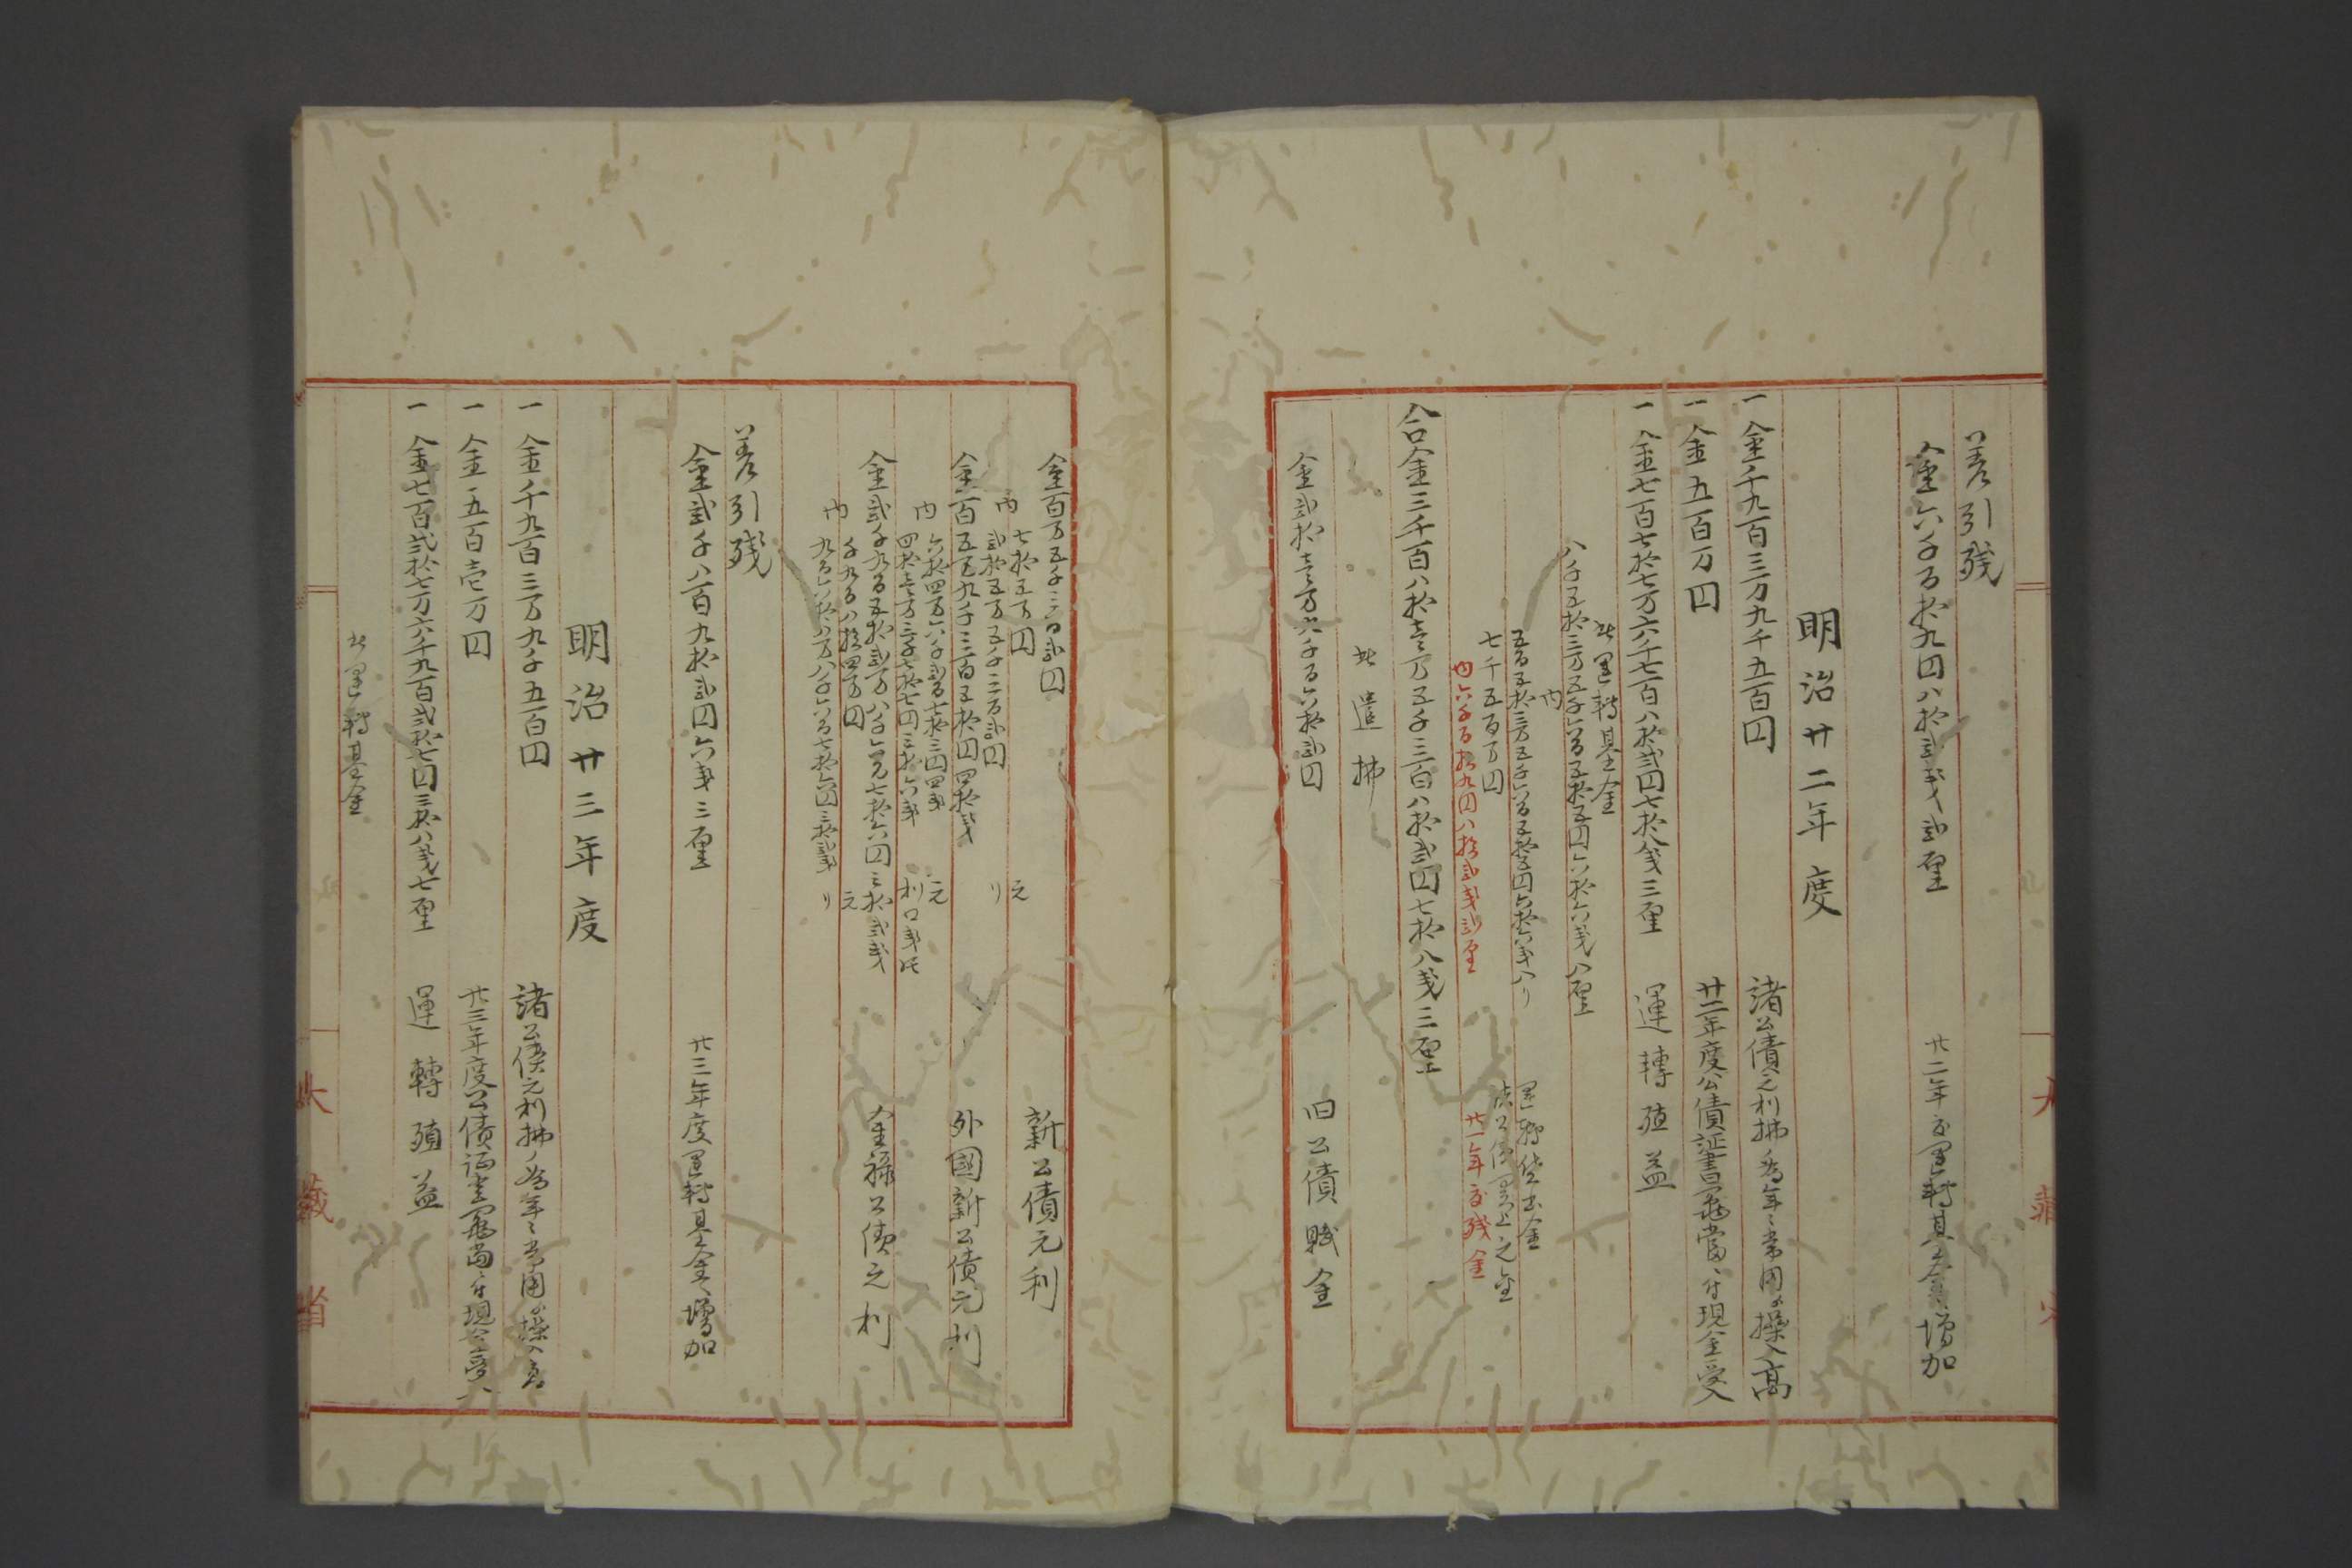 差引残
金六千百拾九円八拾弐戋弐厘 廿二年度運轉基金ヘ増加
明治廿二年度
一金千九百三万九千五百円 諸公債元利拂ノ為年々常用ヨリ操入高
一金五百万円 廿二年度公債証書冕當ニ付現金受入
一金七百七拾七万六千七百八拾弐円七拾八戋三厘 運轉殖益
此運轉基金
八千五拾三万五千六百五拾五円六拾六戋八厘
内
五百五拾三万五千六百五拾五円六拾六戋八リ 運轉貸出金
七千五百万円
内六千百拾九円八拾弐戋弐厘 廿一年度残金
合金三千百八拾壱万五千三百八拾弐円七拾八戋三厘
此遣拂
金弐拾壱万六千百六拾弐円 旧公債賦金
金百万五千三百弐円 新公債元利
内
七拾五万円 元
弐拾五万五千三百弐円 リ
金百五万九千三百五拾円四拾戋 外國新公債元利
内
六拾四万六千弐百七拾三円四戋 元
四拾壱万三千七拾七円三拾六戋 利
金弐千九百五拾弐万八千六百七拾六円三拾弐戋 金禄公債元利
内
千九百八拾四万円 元
九百六拾八万八千六百七拾六円三拾弐戋 リ
差引残
金弐千八百九拾弐円六戋三厘 廿三年度運轉基金ヘ増加
明治廿三年度
一金千九百三万九千五百円 諸公債元利拂ノ為年々常用ヨリ操入高
一金五百壱万円 廿三年度公債証書冕當ニ付現金受入
一金七百弐拾七万六千九百弐拾七円三拾八戋七厘 運轉殖益
此運轉基金
大藏省